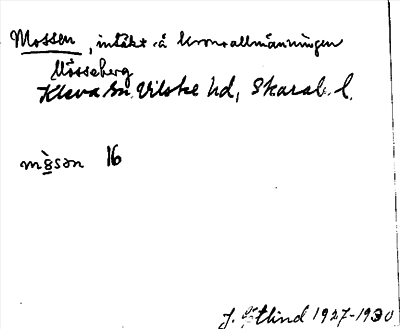 Mossen, intäkt å kronoallmänningen
Mösseberg
Kleva sn. Vilske hd, Skarab. l.
mòsən 16
J. Götlind 1927-1930